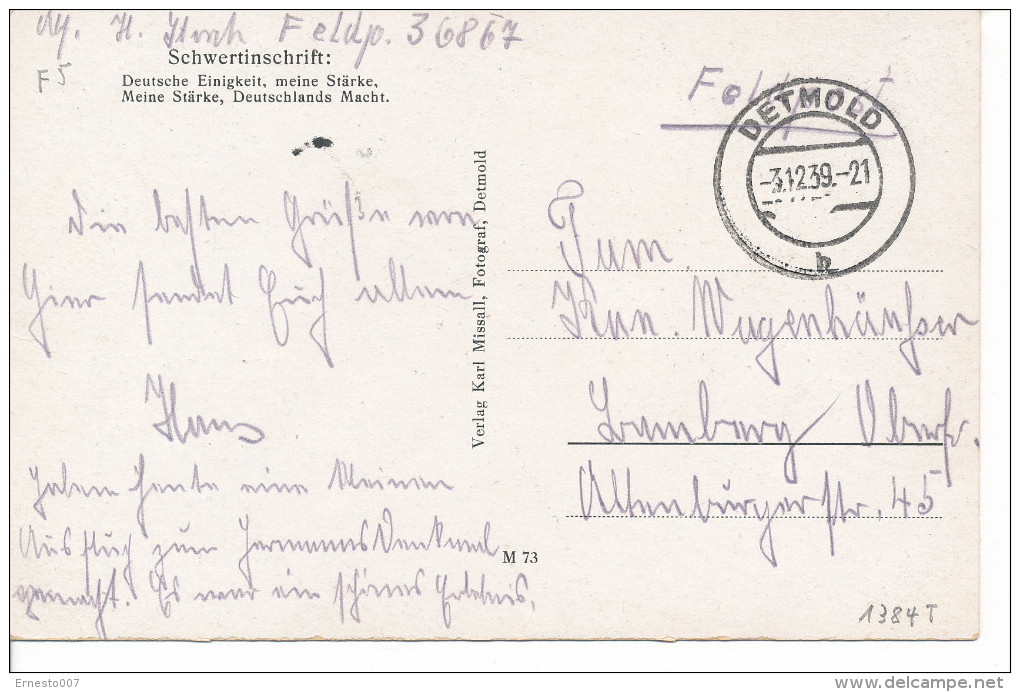 H. Feldp. 36867
F5
Schwertinschrift:
Deutsche Einigkeit, meine Stärke,
Meine Stärke, Deutschlands Macht.
Die besten Grüße von
Hier sendet Euch allen
Hans
Haben heute eine kleinen
Ausflug zum Hermanns Denkmal
gemacht. Es war ein schönes Erlebnis.
Verlag Karl Missall, Fotograf, Detmold
M 73
Feldpost
DETMOLD
-3.12.39.-21
b
Fam.
Wugenhäußer
Bamberg Oberfr.
Altenburgerstr. 45
1384T
Ernesto007
delcampe.net